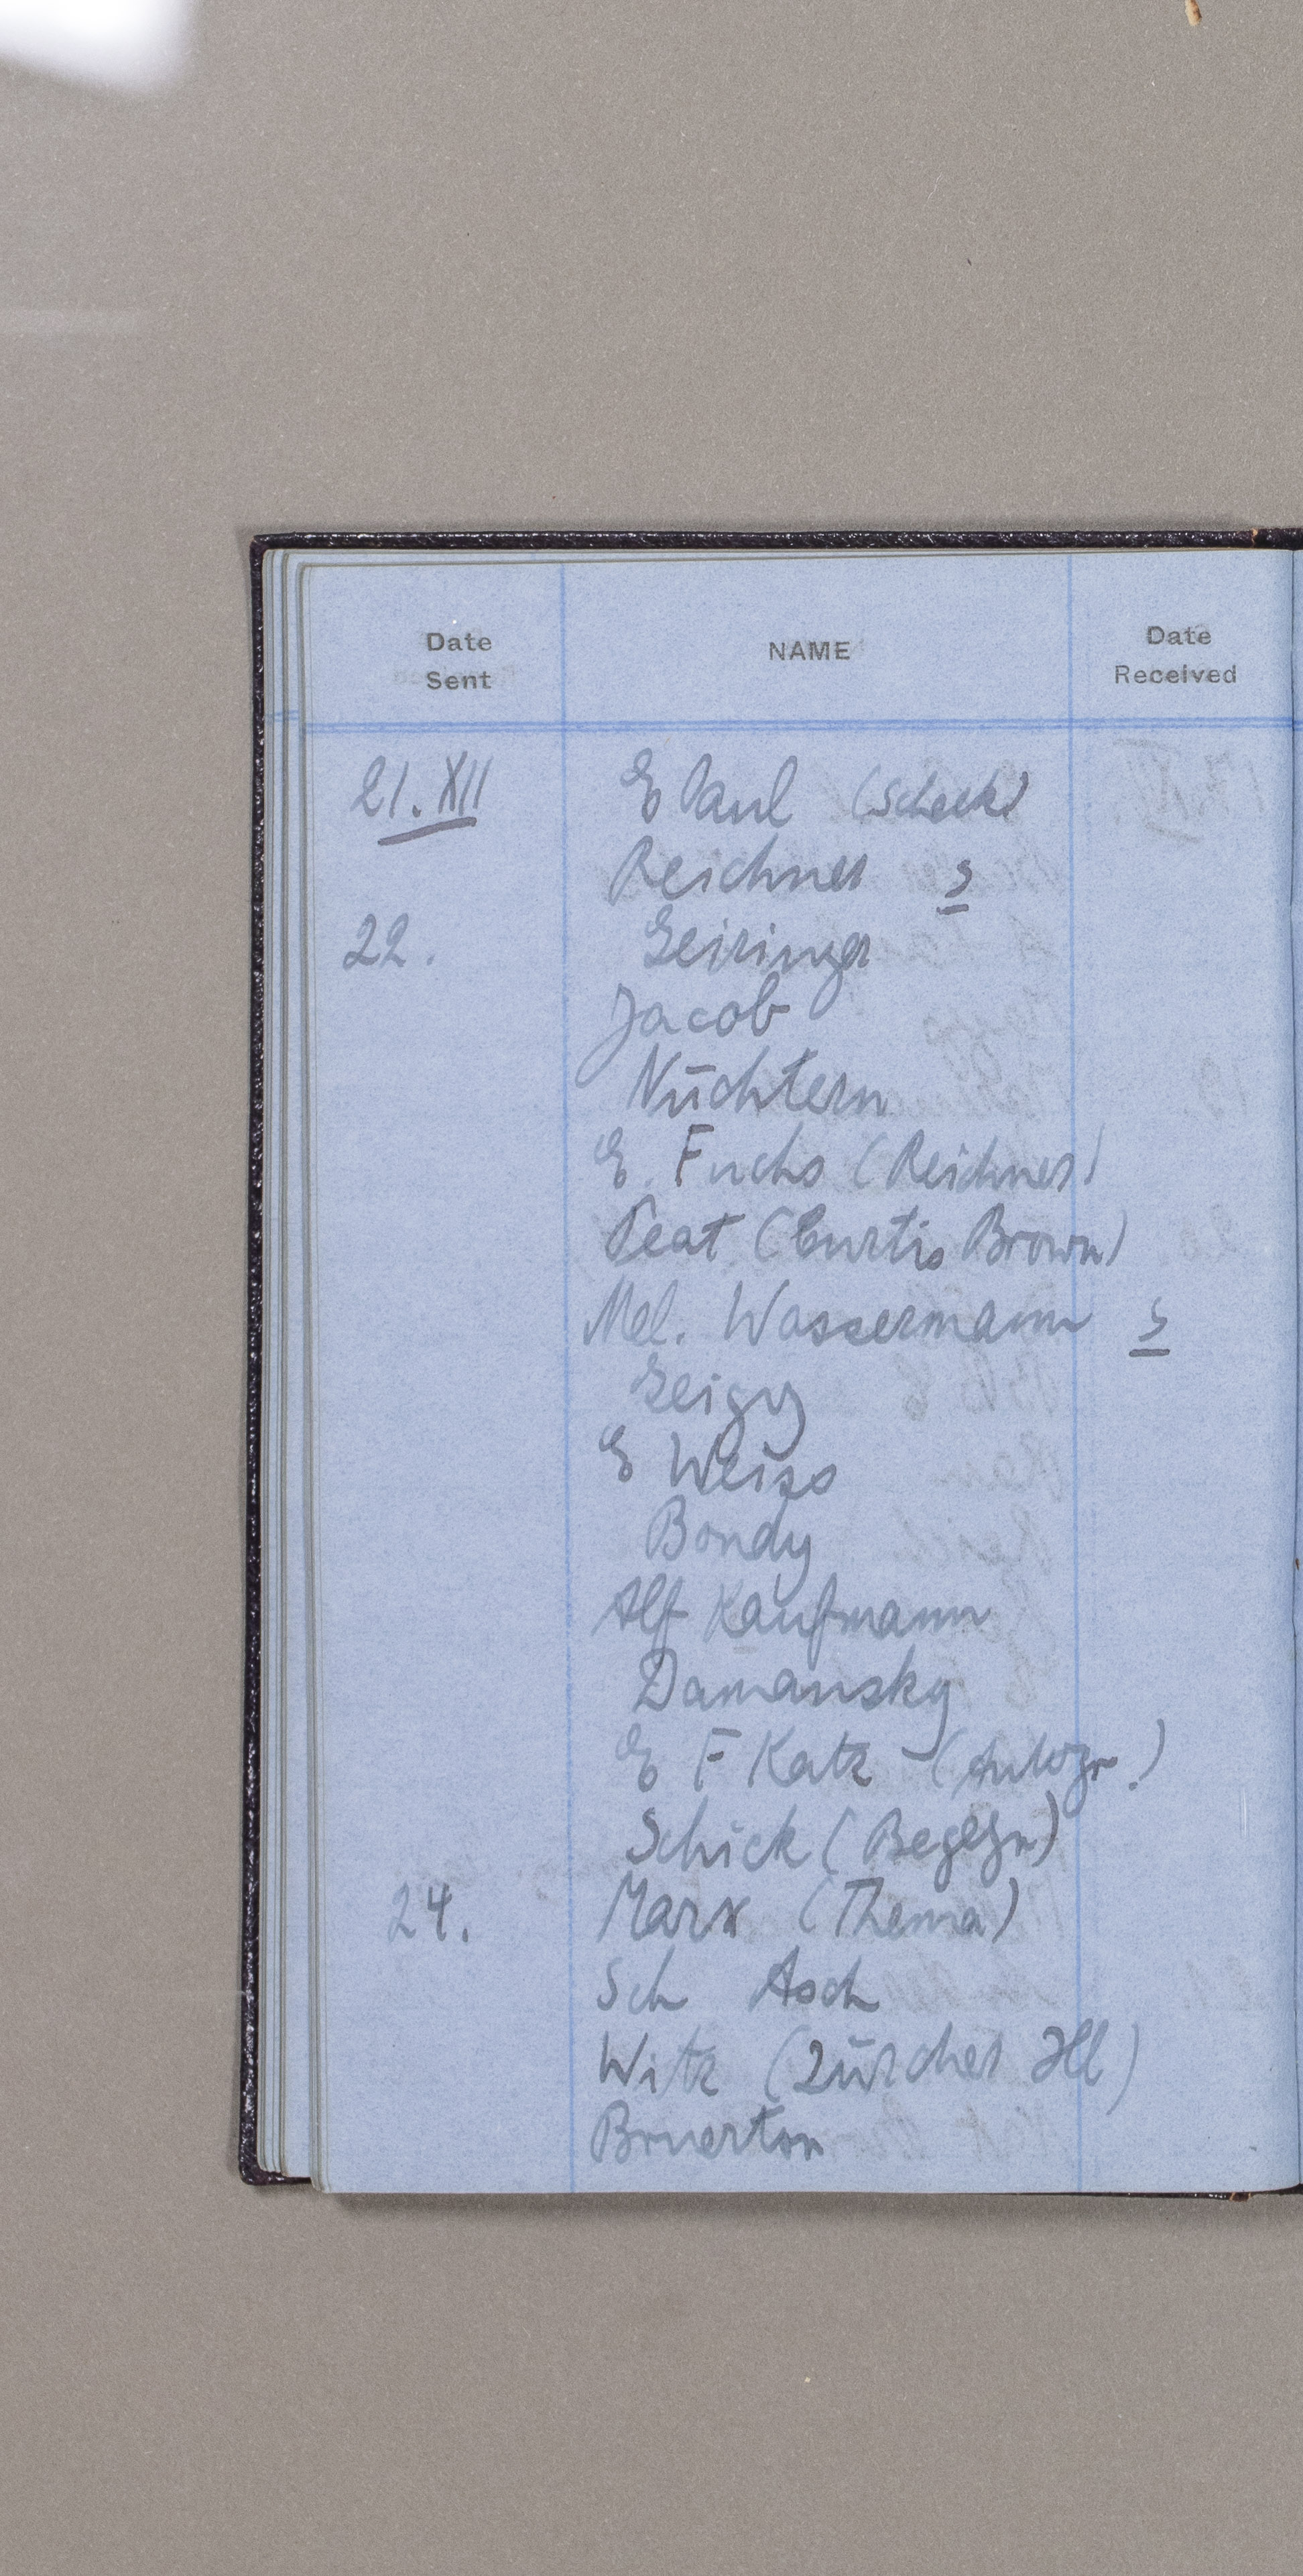 Date Sent NAME Date Received
21. XII E Paul (Scheck)
Reichner s
22. Geiringer
Jacob
Nüchtern
E. Fuchs (Reichner)
Peat (Curtis Brown)
Mel. Wassermann s
Geigy
E Weiss
Bondy
Alf Kaufmann
Damansky
E F Katz (Autogr.)
Schick (Begegn)
24. Marx (Thema)
Sch Asch
Witz (Zürcher Ill)
Bruerton